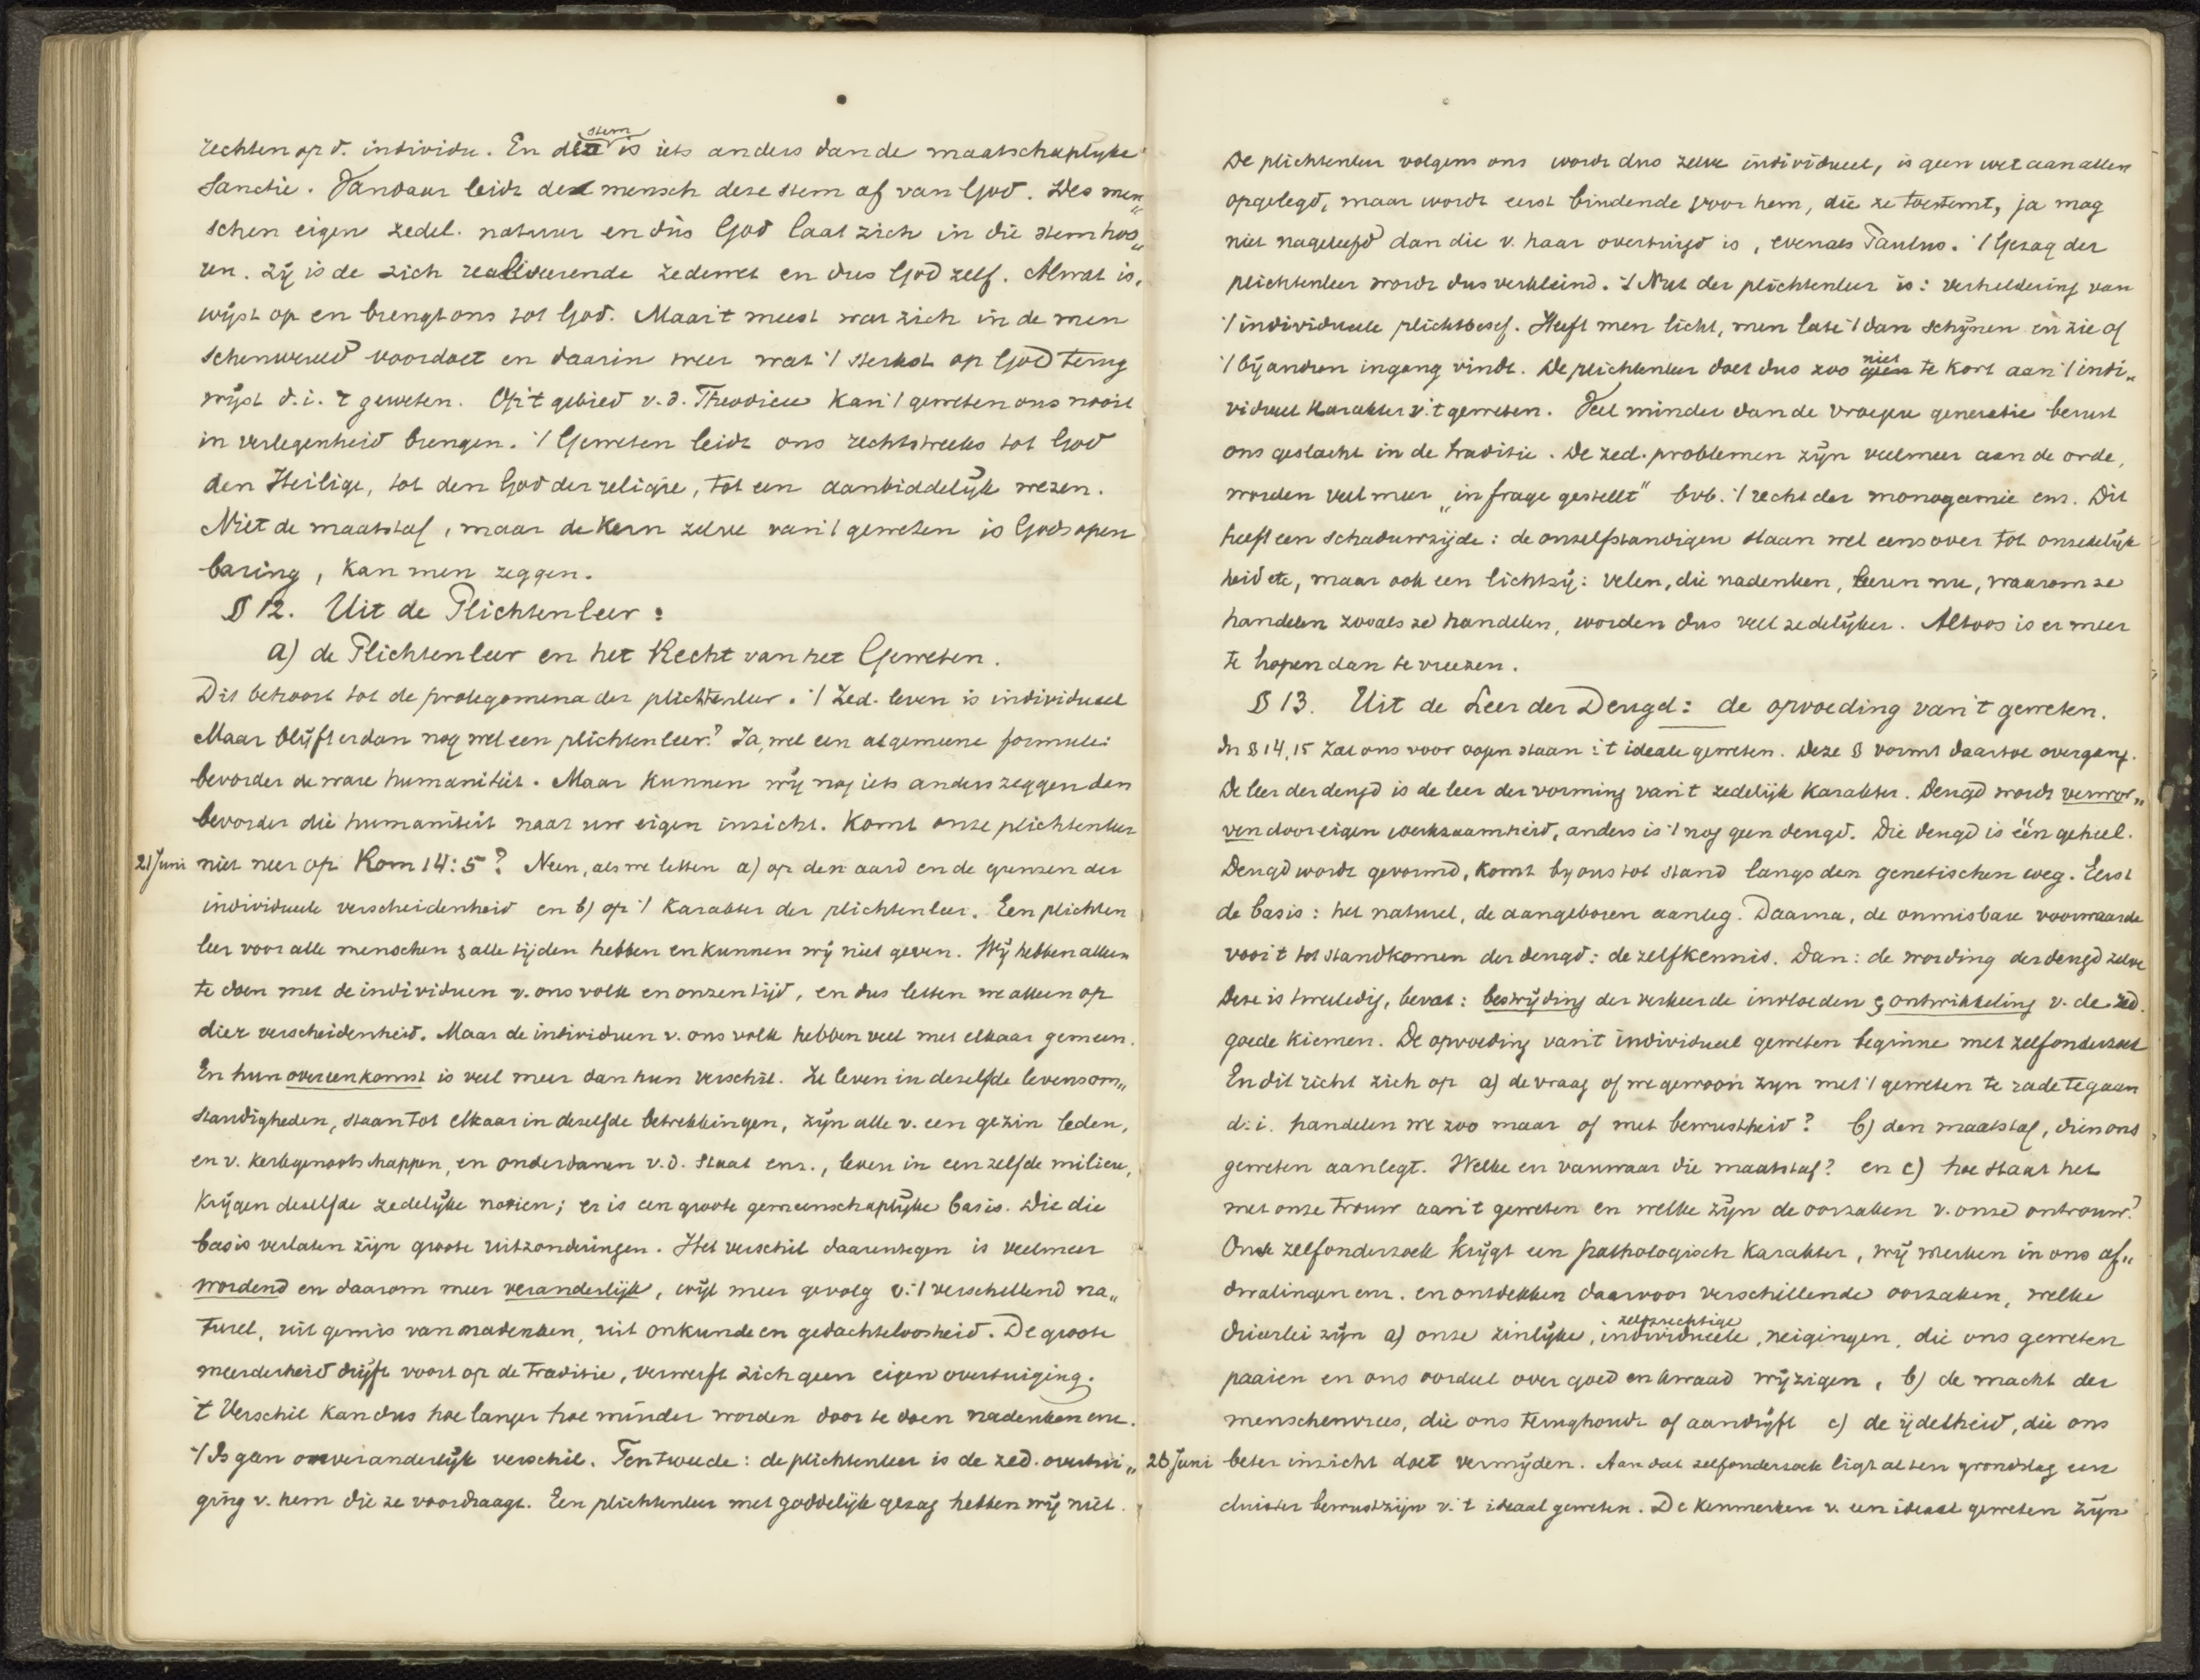 rechten op d. individu. En die stem is iets anders dan de maatschaplyke
Sanctie. Vandaar leidt de mensch deze stem af van God. Des men„
schen eigen zedel. natuur en dùs God laat zich in die stem hoo„
ren. Zij is de zich realiseerende zedewet en dus God zelf. Alwat is,
wijst op en brengt ons tot God. Maar 't meest wat zich in de men
schenwereld voordoet en daarin weer wat 't sterkst op God terug
wijst d.i. 't geweten. Op 't gebied v.d. Theodicee kan 't geweten ons nooit
in verlegenheid brengen. 't Geweten leidt ons rechtstreeks tot God
den Heilige, tot den God der religie, tot een aanbiddelijk wezen.
Niet de maatstaf, maar de Kern zelve van 't geweten is Gods open
baring, kan men zeggen.
§ 12. Uit de Plichtenleer:
a) de Plichtenleer en het Recht van het Geweten.
Dit behoort tot de prolegomena der plichtenleer. 't Zed. leven is individueel
Maar blijft er dan nog wel een plichtenleer? Ja, wel een algemeene formule:
bevorder de ware humaniteit. Maar kunnen wij nog iets anders zeggen dan
bevorder die humaniteit naar uw eigen inzicht. Komt onze plichtenleer
21 Juni niet neer op Rom 14:5? Neen, als we letten a) op den aard en de grenzen der
individueele verscheidenheid en b) op 't karakter der plichtenleer. Een plichten
leer voor alle menschen & alle tijden hebben en kunnen wij niet geven. Wij hebben alleen
te doen met de individuen v. ons volk en onzen tijd, en dus letten we alleen op
dier verscheidenheid. Maar de individuen v. ons volk hebben veel met elkaar gemeen.
En hun overeenkomst is veel meer dan hun verschil. Ze leven in dezelfde levensom„
standigheden, staan tot elkaar in dezelfde betrekkingen, zijn alle v. een gezin leden,
en v. kerkgenootschappen, en onderdanen v.d. Staat enz., leven in eenzelfde milieu,
krijgen dezelfde zedelijke notien; er is een groote gemeenschaplijke basis. Die die
basis verlaten zijn groote uitzonderingen. Het verschil daarentegen is veelmeer
wordend en daarom meer veranderlijk, wijl meer gevolg v. 't verschillend na„
tureel, uit gemis van nadenken, uit onkunde en gedachteloosheid. De groote
meerderheid drijft voort op de traditie, verwerft zich geen eigen overtuiging.
't Verschil kan dus hoe langer hoe minder worden door te doen nadenken enz.
't Is geen onveranderlijk verschil. Ten tweede: de plichtenleer is de zed. overtui„
ging v. hem die ze voordraagt. Een plichtenleer met goddelijk gezag hebben wij niet.
De plichtenleer volgens ons wordt dus zelve individueel, is geen wet aan allen
opgelegd, maar wordt eerst bindende voor hem, die ze toestemt, ja mag
niet nageleefd dan die v. haar overtuigd is, evenals Paulus. 't Gezag der
plichtenleer wordt dus verkleind. 't Nut der plichtenleer is: verheldering van
't individueele plichtbesef. Heeft men licht, men late 't dan schijnen en zie of
't bij andren ingang vindt. De plichtenleer doet dus zoo niet te kort aan 't indi„
vidueel karakter v. 't geweten. Veel minder dan de vroegere generatie berust
ons geslacht in de traditie. De zed. problemen zijn veelmeer aan de orde,
worden veel meer „in frage gestellt" bvb. 't recht der monogamie enz. Dit
heeft een schaduwzijde: de onzelfstandigen slaan wel eens over tot onzedelijk
heid etc, maar ook een lichtzij: velen, die nadenken, leeren nu, waarom ze
handelen zooals ze handelen, worden dus veel zedelijker. Altoos is er meer
te hopen dan te vreezen.
§ 13. Uit de Leer der Deugd: de opvoeding van 't geweten.
In § 14, 15 zal ons voor oogen staan: 't ideale geweten. Deze § vormt daartoe overgang.
De leer der deugd is de leer der vorming van 't zedelijk karakter. Deugd wordt verwor„
ven door eigen werkzaamheid, anders is 't nog geen deugd. Die deugd is één geheel.
Deugd wordt gevormd, komt by ons tot stand langs den genetischen weg. Eerst
de basis: het naturel, de aangeboren aanleg. Daarna, de onmisbare voorwaarde
voor 't tot standkomen der deugd: de zelfkennis. Dan: de wording der deugd zelve
Deze is tweeledig, bevat: bestrijding der verkeerde invloeden & ontwikkeling v. de zed.
goede kiemen. De opvoeding van 't individueel geweten beginne met zelfonderzoek
En dit richt zich op a) de vraag of we gewoon zyn met 't geweten te rade te gaan
d.i. handelen we zoo maar of met bewustheid? b) den maatstaf, dien ons
geweten aanlegt. Welke en vanwaar die maatstaf? en c) hoe staat het
met onze trouw aan 't geweten en welke zijn de oorzaken v. onze ontrouw?
Onze zelfonderzoek krijgt een pathologisch karakter, wij merken in ons af„
dwalingen enz. en ontdekken daarvoor verschillende oorzaken, welke
drieërlei zijn a) onze zinlijke, zelfzuchtige individueele, neigingen, die ons geweten
paaien en ons oordeel over goed en kwaad wijzigen, b) de macht der
menschenvrees, die ons terughoudt of aandrijft c) de ijdelheid, die ons
28 Juni beter inzicht doet vermijden. Aan dat zelfonderzoek ligt al ten grondslag een
duister bewustzijn v. 't ideaal geweten. De kenmerken v. een ideaal geweten zijn